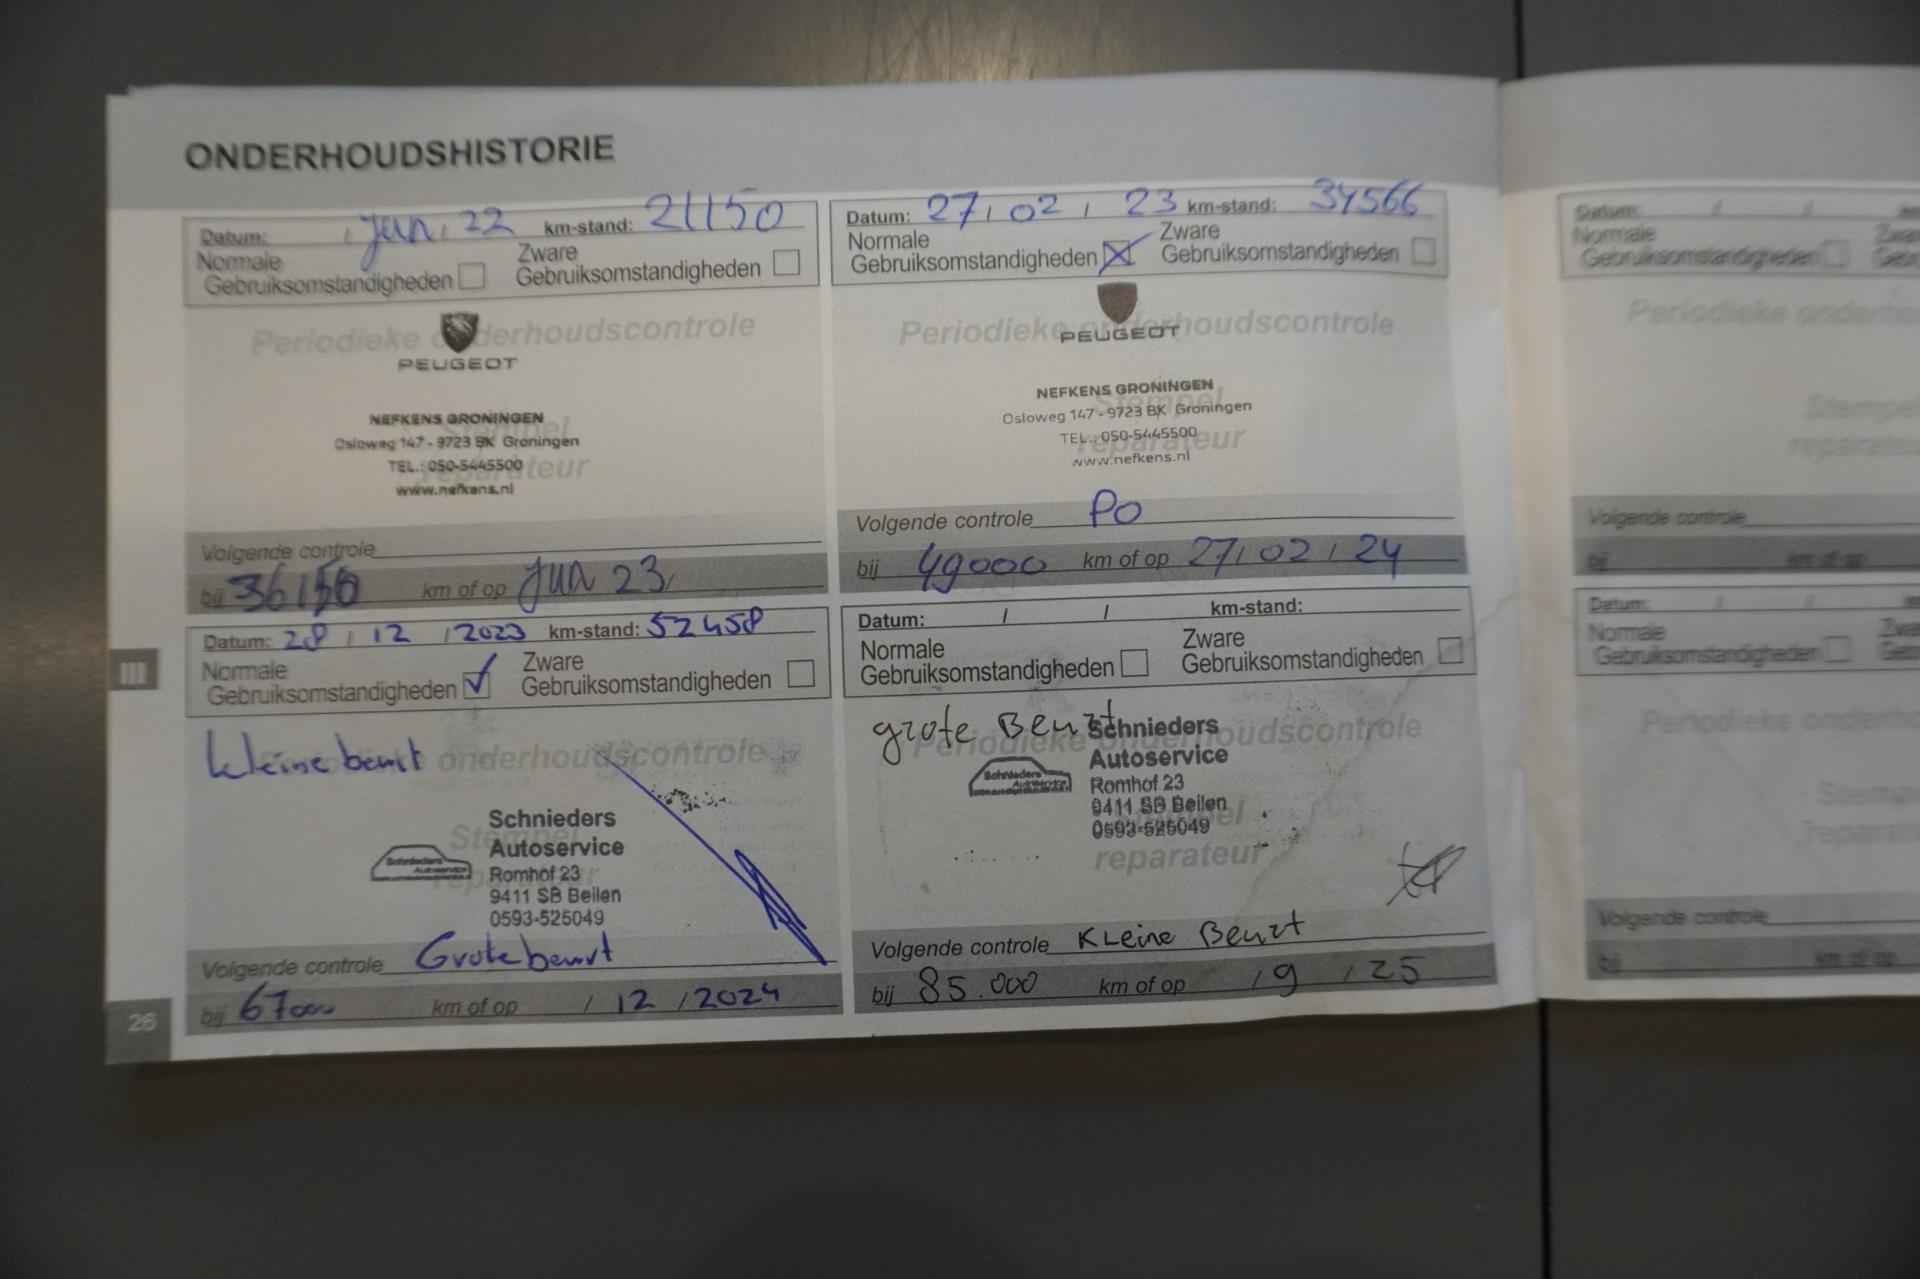 ONDERHOUDSHISTORIE
Datum: / Jun / 22 km-stand: 21150
Normale Gebruiksomstandigheden Zware Gebruiksomstandigheden
Periodieke onderhoudscontrole
PEUGEOT
NEFKENS GRONINGEN
Osloweg 147 - 9723 BK Groningen
TEL.: 050-5445500
www.nefkens.nl
Stempel reparateur
Volgende controle
bij 36150 km of op Jun 23
Datum: 27 / 02 / 23 km-stand: 34566
Normale Gebruiksomstandigheden Zware Gebruiksomstandigheden
Periodieke onderhoudscontrole
PEUGEOT
NEFKENS GRONINGEN
Osloweg 147 - 9723 BK Groningen
TEL.: 050-5445500
www.nefkens.nl
Stempel reparateur
Volgende controle PO
bij 49000 km of op 27 / 02 / 24
Datum: 28 / 12 / 2023 km-stand: 52458
Normale Gebruiksomstandigheden Zware Gebruiksomstandigheden
kleine beurt
onderhoudscontrole
Schnieders
Autoservice
Romhof 23
9411 SB Beilen
0593-525049
Schnieders Autoservice
Stempel reparateur
Volgende controle Grote beurt
bij 67000 km of op / 12 / 2024
Datum: / / km-stand:
Normale Gebruiksomstandigheden Zware Gebruiksomstandigheden
grote Beurt
Periodieke onderhoudscontrole
Schnieders
Autoservice
Romhof 23
9411 SB Beilen
0593-525049
Schnieders Autoservice
Stempel reparateur
Volgende controle Kleine Beurt
bij 85.000 km of op / 9 / 25
III
26
Datum: / /
Normale
Gebruiksomstandigheden
Periodieke
Volgende controle
bij km of op
Datum: / /
Normale
Gebruiksomstandigheden
Periodieke
Volgende controle
bij km of op